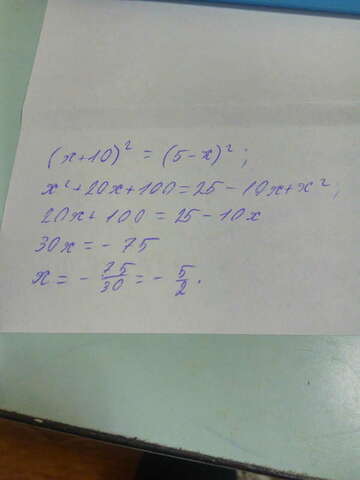 (x+10)² = (5-x)²;
x²+20x+100=25-10x+x²;
20x+100=25-10x
30x=-75
x=-75/30=-5/2.